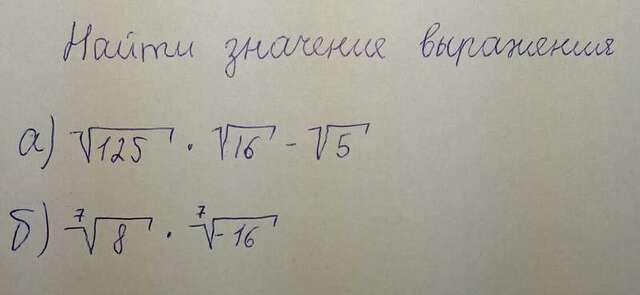 Найти значение выражения
а) √125 · √16 - √5
б) ⁷√8 · ⁷√-16